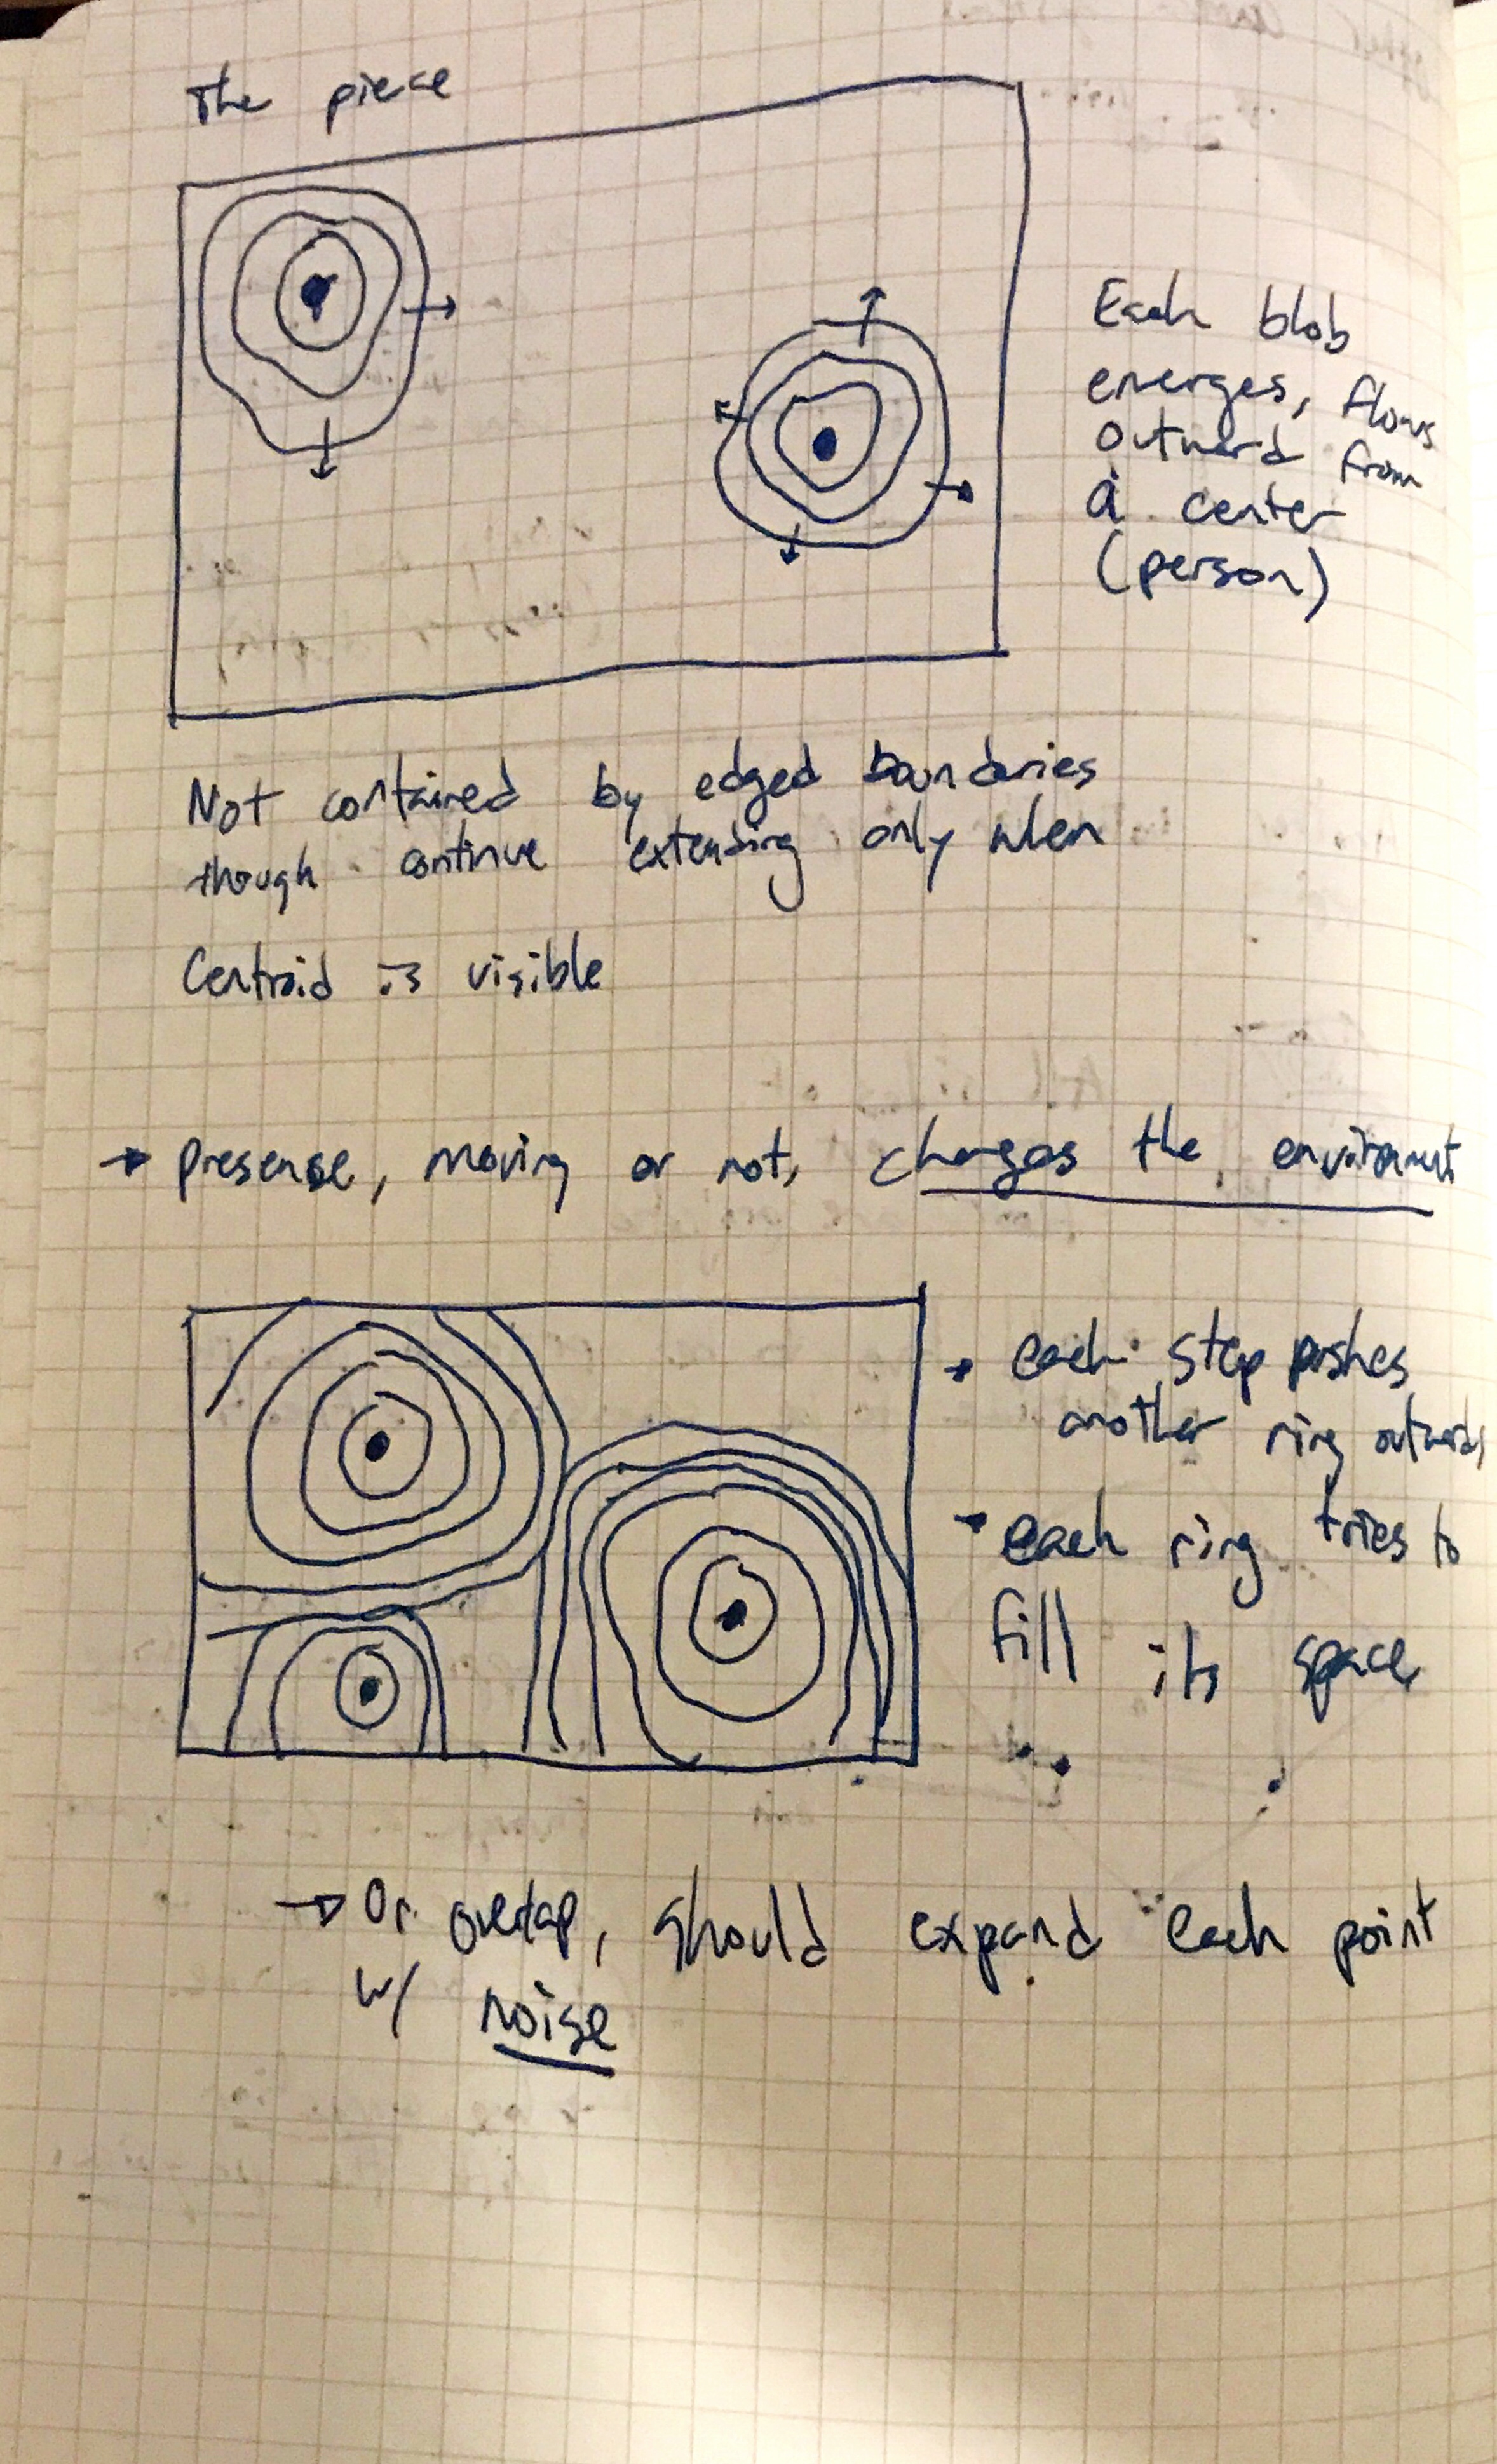 The piece
Each blob
emerges, flows
outward from
a center
(person)
Not contained by edged boundaries
though continue extending only when
Centroid is visible
→ presense, moving or not, changes the enviroment
→ each step pushes
another ring outwards
→ each ring tries to
fill its space
→ Or overlap, should expand each point
w/ noise